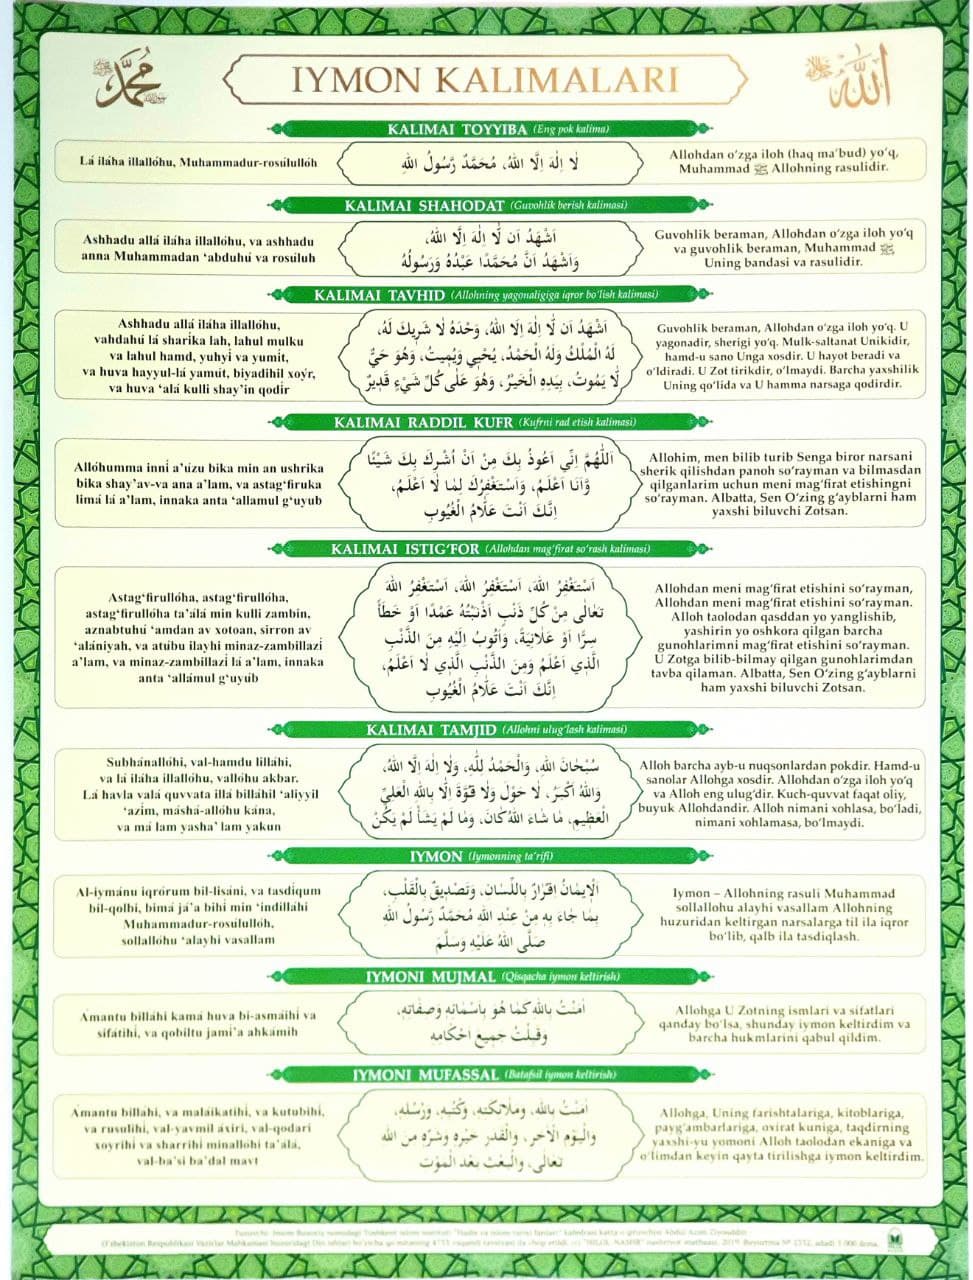 محمد
IYMON KALIMALARI
الله
KALIMAI TOYYIBA (Eng pok kalima)
Lá iláha illallóhu, Muhammadur-rosúlullóh
لَا اِلٰهَ اِلَّا اللهُ، مُحَمَّدٌ رَّسُولُ اللهِ
Allohdan o‘zga iloh (haq ma’bud) yo‘q,
Muhammad ﷺ Allohning rasulidir.
KALIMAI SHAHODAT (Guvohlik berish kalimasi)
Ashhadu allá iláha illallóhu, va ashhadu
anna Muhammadan ‘abduhú va rosuluh
اَشْهَدُ اَن لَّا اِلٰهَ اِلَّا اللهُ،
وَاَشْهَدُ اَنَّ مُحَمَّدًا عَبْدُهُ وَرَسُولُهُ
Guvohlik beraman, Allohdan o‘zga iloh yo‘q
va guvohlik beraman, Muhammad ﷺ
Uning bandasi va rasulidir.
KALIMAI TAVHID (Allohning yagonaligiga iqror bo‘lish kalimasi)
Ashhadu allá iláha illallóhu,
vahdahú lá sharíka lah, lahul mulku
va lahul hamd, yuhyí va yumít,
va huva hayyul-lá yamút, biyadihil xoýr,
va huva ‘alá kulli shay’in qodír
اَشْهَدُ اَن لَّا اِلٰهَ اِلَّا اللهُ، وَحْدَهُ لَا شَرِيكَ لَهُ،
لَهُ الْمُلْكُ وَلَهُ الْحَمْدُ، يُحْيِي وَيُمِيتُ، وَهُوَ حَيٌّ
لَا يَمُوتُ، بِيَدِهِ الْخَيْرُ، وَهُوَ عَلٰى كُلِّ شَيْءٍ قَدِيرٌ
Guvohlik beraman, Allohdan o‘zga iloh yo‘q. U
yagonadir, sherigi yo‘q. Mulk-saltanat Unikidir,
hamd-u sano Unga xosdir. U hayot beradi va
o‘ldiradi. U Zot tirikdir, o‘lmaydi. Barcha yaxshilik
Uning qo‘lida va U hamma narsaga qodirdir.
KALIMAI RADDIL KUFR (Kufrni rad etish kalimasi)
Allóhumma inní a’úzu bika min an ushrika
bika shay’av-va ana a’lam, va astag‘firuka
limá lá a’lam, innaka anta ‘allamul g‘uyub
اَللّٰهُمَّ اِنِّي اَعُوذُ بِكَ مِنْ اَنْ اُشْرِكَ بِكَ شَيْئًا
وَّاَنَا اَعْلَمُ، وَاَسْتَغْفِرُكَ لِمَا لَا اَعْلَمُ،
اِنَّكَ اَنْتَ عَلَّامُ الْغُيُوبِ
Allohim, men bilib turib Senga biror narsani
sherik qilishdan panoh so‘rayman va bilmasdan
qilganlarim uchun meni mag‘firat etishingni
so‘rayman. Albatta, Sen O‘zing g‘ayblarni ham
yaxshi biluvchi Zotsan.
KALIMAI ISTIG‘FOR (Allohdan mag‘firat so‘rash kalimasi)
Astag‘firullóha, astag‘firullóha,
astag‘firullóha ta’álá min kulli zambin,
aznabtuhú ‘amdan av xotoan, sirron av
‘alániyah, va atúbu ilayhi minaz-zambillazí
a’lam, va minaz-zambillazí lá a’lam, innaka
anta ‘allámul g‘uyúb
اَسْتَغْفِرُ اللهَ، اَسْتَغْفِرُ اللهَ، اَسْتَغْفِرُ اللهَ
تَعَالٰى مِنْ كُلِّ ذَنْبٍ اَذْنَبْتُهُ عَمْدًا اَوْ خَطَأً
سِرًّا اَوْ عَلَانِيَةً، وَاَتُوبُ اِلَيْهِ مِنَ الذَّنْبِ
الَّذِي اَعْلَمُ وَمِنَ الذَّنْبِ الَّذِي لَا اَعْلَمُ،
اِنَّكَ اَنْتَ عَلَّامُ الْغُيُوبِ
Allohdan meni mag‘firat etishini so‘rayman,
Allohdan meni mag‘firat etishini so‘rayman.
Alloh taolodan qasddan yo yanglishib,
yashirin yo oshkora qilgan barcha
gunohlarimni mag‘firat etishini so‘rayman.
U Zotga bilib-bilmay qilgan gunohlarimdan
tavba qilaman. Albatta, Sen O‘zing g‘ayblarni
ham yaxshi biluvchi Zotsan.
KALIMAI TAMJID (Allohni ulug‘lash kalimasi)
Subhánallóhi, val-hamdu lilláhi,
va lá iláha illallóhu, vallóhu akbar.
Lá havla valá quvvata illá billáhil ‘aliyyil
‘azím, máshá-allóhu kána,
va má lam yasha’ lam yakun
سُبْحَانَ اللهِ، وَالْحَمْدُ لِلّٰهِ، وَلَا اِلٰهَ اِلَّا اللهُ،
وَاللهُ اَكْبَرُ، لَا حَوْلَ وَلَا قُوَّةَ اِلَّا بِاللهِ الْعَلِيِّ
الْعَظِيمِ، مَا شَاءَ اللهُ كَانَ، وَمَا لَمْ يَشَأْ لَمْ يَكُنْ
Alloh barcha ayb-u nuqsonlardan pokdir. Hamd-u
sanolar Allohga xosdir. Allohdan o‘zga iloh yo‘q
va Alloh eng ulug‘dir. Kuch-quvvat faqat oliy,
buyuk Allohdandir. Alloh nimani xohlasa, bo‘ladi,
nimani xohlamasa, bo‘lmaydi.
IYMON (Iymonning ta’rifi)
Al-iymánu iqrórum bil-lisáni, va tasdíqum
bil-qolbi, bimá já’a bihí min ‘indilláhi
Muhammadur-rosúlullóh,
sollallóhu ‘alayhi vasallam
اَلْاِيمَانُ اِقْرَارٌ بِاللِّسَانِ، وَتَصْدِيقٌ بِالْقَلْبِ،
بِمَا جَاءَ بِهِ مِنْ عِنْدِ اللهِ مُحَمَّدٌ رَّسُولُ اللهِ
صَلَّى اللهُ عَلَيْهِ وَسَلَّمَ
Iymon – Allohning rasuli Muhammad
sollallohu alayhi vasallam Allohning
huzuridan keltirgan narsalarga til ila iqror
bo‘lib, qalb ila tasdiqlash.
IYMONI MUJMAL (Qisqacha iymon keltirish)
Ámantu billáhi kamá huva bi-asmáihí va
sifátihí, va qobiltu jamí’a ahkámih
اٰمَنْتُ بِاللهِ كَمَا هُوَ بِاَسْمَائِهِ وَصِفَاتِهِ،
وَقَبِلْتُ جَمِيعَ اَحْكَامِهِ
Allohga U Zotning ismlari va sifatlari
qanday bo‘lsa, shunday iymon keltirdim va
barcha hukmlarini qabul qildim.
IYMONI MUFASSAL (Batafsil iymon keltirish)
Ámantu billáhi, va maláikatihí, va kutubihí,
va rusulihí, val-yavmil áxiri, val-qodari
xoyrihí va sharrihí minallóhi ta’álá,
val-ba’si ba’dal mavt
اٰمَنْتُ بِاللهِ، وَمَلَائِكَتِهِ، وَكُتُبِهِ، وَرُسُلِهِ،
وَالْيَوْمِ الْاٰخِرِ، وَالْقَدَرِ خَيْرِهِ وَشَرِّهِ مِنَ اللهِ
تَعَالٰى، وَالْبَعْثِ بَعْدَ الْمَوْتِ
Allohga, Uning farishtalariga, kitoblariga,
payg‘ambarlariga, oxirat kuniga, taqdirning
yaxshi-yu yomoni Alloh taolodan ekaniga va
o‘limdan keyin qayta tirilishga iymon keltirdim.